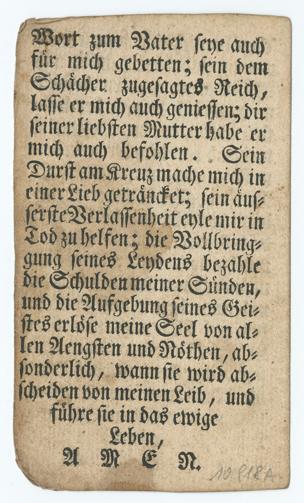 Wort zum Vater seye auch
für mich gebetten; sein dem
Schächer zugesagtes Reich,
lasse er mich auch geniessen; dir
seiner liebsten Mutter habe er
mich auch befohlen. Sein
Durst am Kreuz mache mich in
einer Lieb geträncket; sein äus-
serste Verlassenheit eyle mir in
Tod zu helfen; die Vollbring-
gung seines Leydens bezahle
die Schulden meiner Sünden,
und die Aufgebung seines Gei-
stes erlöse meine Seel von al-
len Aengsten und Nöthen, ab-
sonderlich, wann sie wird ab-
scheiden von meinen Leib, und
führe sie in das ewige
Leben,
AMEN.
10.918A